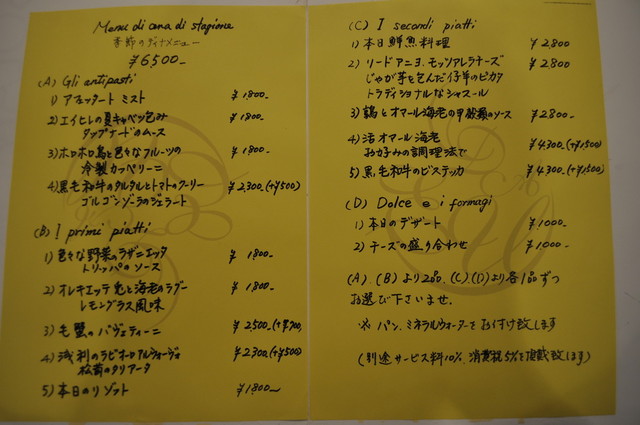 Menu di cena di stagione
季節のディナメニュー
¥6,500-
(A) Gli antipasti
1) アフェッタート ミスト ¥1,800-
2) エイヒレの夏キャベツ包み ¥1,800-
タップナードのムース
3) ホロホロ鳥と色々なフルーツの ¥1,800-
冷製カッペリーニ
4) 黒毛和牛のタルタルとトマトのクーリー ¥2,300(+¥500)
ゴルゴンゾーラのジェラート
(B) I primi piatti
1) 色々な野菜のラザニエッタ ¥1,800-
トリッパのソース
2) オレキエッテ 兎と海老のラグー ¥1,800-
レモングラス風味
3) 毛蟹のパヴェティーニ ¥2,500-(+¥700)
4) 浅利のラビオーロアルウォーヴォ ¥2,300(+¥500)
松茸のタリアータ
5) 本日のリゾット ¥1,800-
(C) I secondi piatti
1) 本日鮮魚料理 ¥2,800
2) リードアニヨ、モッツアレラチーズ ¥2,800
じゃが芋を包んだ仔羊のピカタ
トラディショナルなシャスール
3) 鶉とオマール海老の甲殻類のソース ¥2,800-
4) 活オマール海老 ¥4,300-(+¥1,500)
お好みの調理法で
5) 黒毛和牛のビステッカ ¥4,300-(+¥1,500)
(D) Dolce e i formagi
1) 本日のデザート ¥1,000-
2) チーズの盛り合わせ ¥1,000-
(A).(B)より2品、(C).(D)より各1品ずつ
お選び下さいませ.
※ パン、ミネラルウォーターをお付け致します
(別途サービス料10%、消費税5%を頂戴致します)